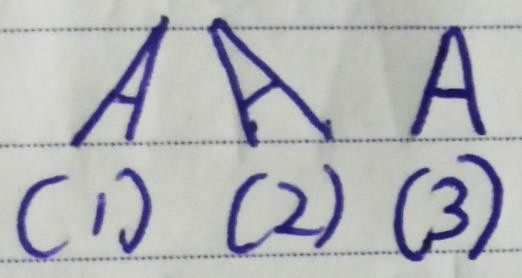 A A A
(1) (2) (3)